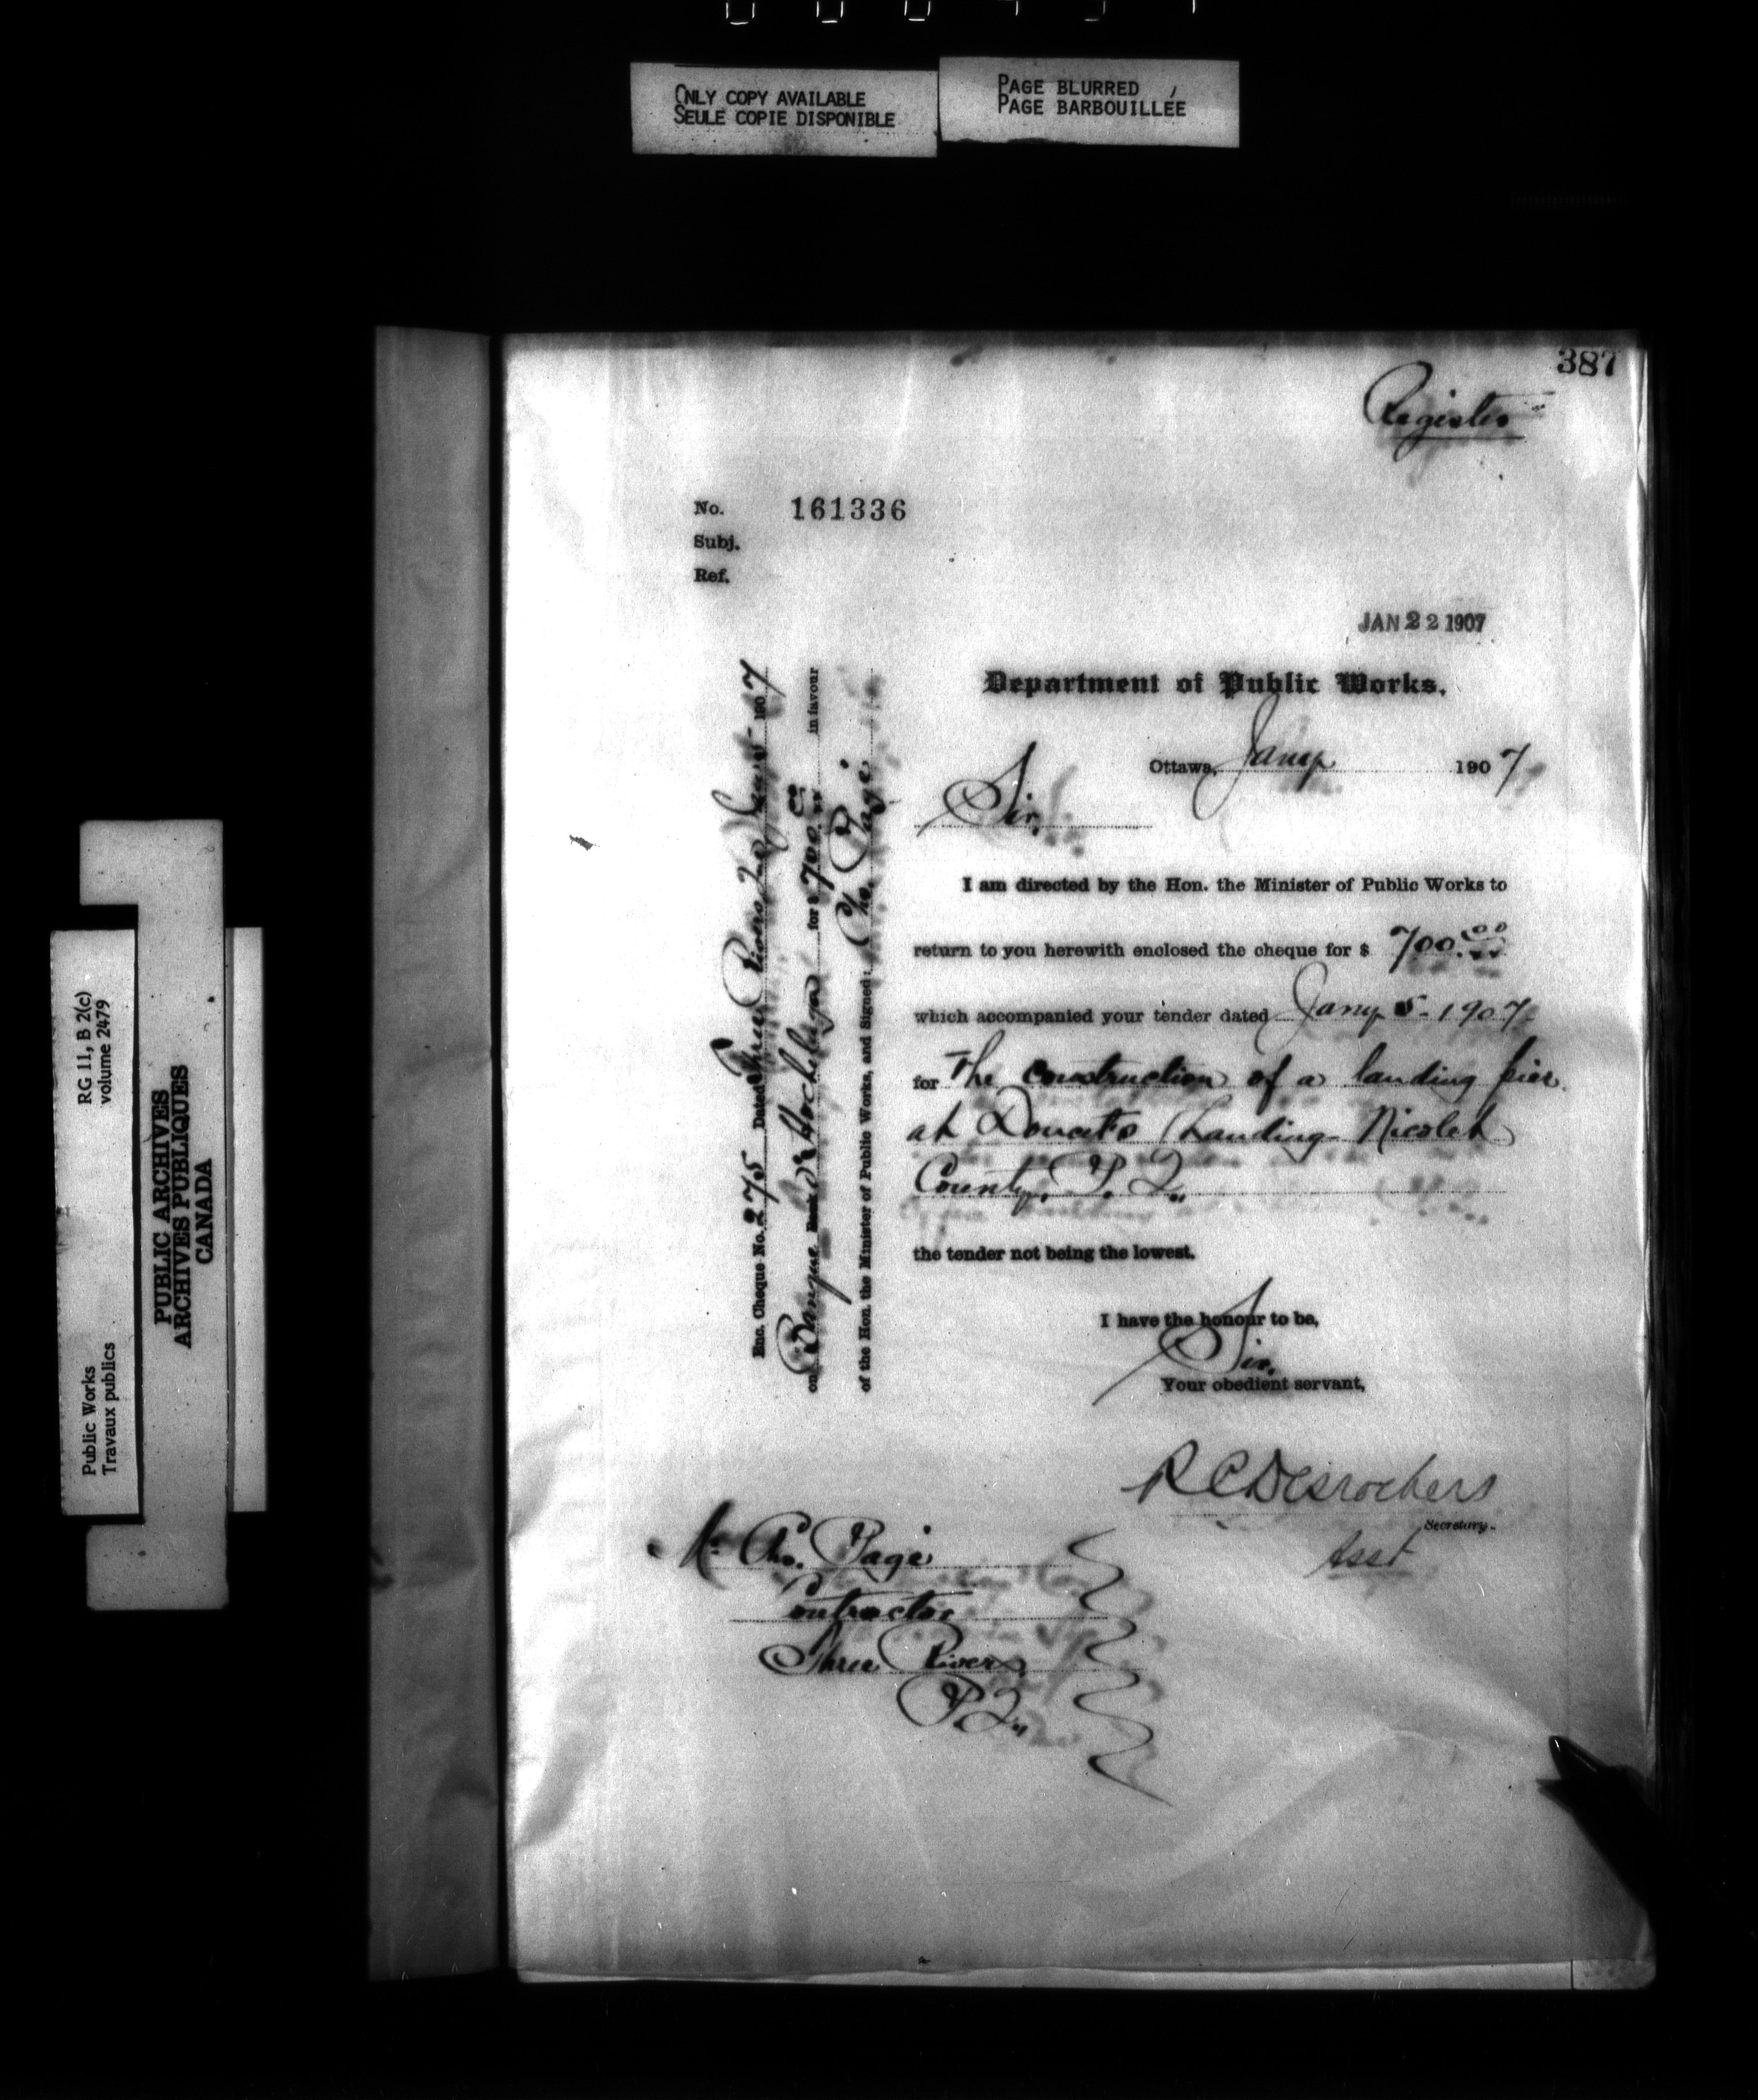 ONLY COPY AVAILABLE
SEULE COPIE DISPONIBLE
PAGE BLURRED
PAGE BARBOUILLÉE
387
Register
No. 161336
Subj.
Ref.
JAN 22 1907
Department of Public Works.
Ottawa, Jany 1907
Sir,
I am directed by the Hon. the Minister of Public Works to
return to you herewith enclosed the cheque for $ 700.00
which accompanied your tender dated Jany 5 - 1907
for The construction of a landing pier
at Doucets Landing Nicolet
County, P. Q.
the tender not being the lowest.
I have the honour to be,
Sir,
Your obedient servant,
R C Desrochers
Secretary.
Asst
Mr Chs. Page
Contractor
Three Rivers
P.Q.
Enc. Cheque No. 275 Dated Three Rivers, Jany 5 - 1907
on Banque d'Hochelaga for $ 700.00 in favour
of the Hon. the Minister of Public Works, and Signed: Chs. Page
RG 11, B 2(c)
volume 2479
Public Works
Travaux publics
PUBLIC ARCHIVES
ARCHIVES PUBLIQUES
CANADA